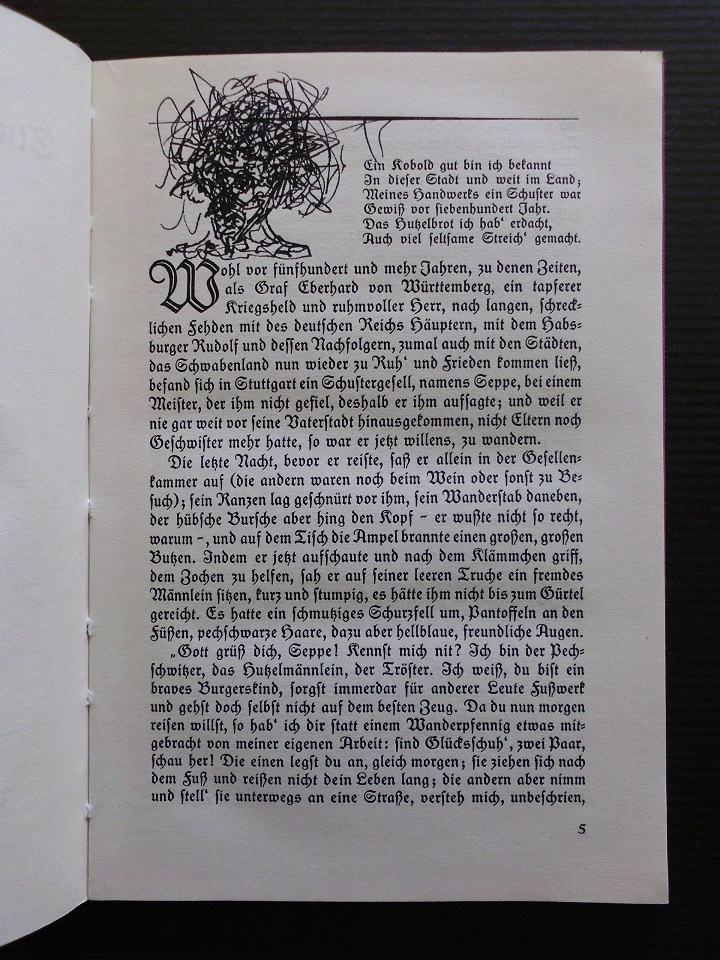 Ein Kobold gut bin ich bekannt
In dieser Stadt und weit im Land;
Meines Handwerks ein Schuster war
Gewiß vor siebenhundert Jahr.
Das Hutzelbrot ich hab' erdacht,
Auch viel seltsame Streich' gemacht.
Wohl vor fünfhundert und mehr Jahren, zu denen Zeiten,
als Graf Eberhard von Württemberg, ein tapferer
Kriegsheld und ruhmvoller Herr, nach langen, schreck-
lichen Fehden mit des deutschen Reichs Häuptern, mit dem Habs-
burger Rudolf und dessen Nachfolgern, zumal auch mit den Städten,
das Schwabenland nun wieder zu Ruh' und Frieden kommen ließ,
befand sich in Stuttgart ein Schustergesell, namens Seppe, bei einem
Meister, der ihm nicht gefiel, deshalb er ihm aufsagte; und weil er
nie gar weit vor seine Vaterstadt hinausgekommen, nicht Eltern noch
Geschwister mehr hatte, so war er jetzt willens, zu wandern.
Die letzte Nacht, bevor er reiste, saß er allein in der Gesellen-
kammer auf (die andern waren noch beim Wein oder sonst zu Be-
such); sein Ranzen lag geschnürt vor ihm, sein Wanderstab daneben,
der hübsche Bursche aber hing den Kopf – er wußte nicht so recht,
warum –, und auf dem Tisch die Ampel brannte einen großen, großen
Butzen. Indem er jetzt aufschaute und nach dem Klämmchen griff,
dem Zochen zu helfen, sah er auf seiner leeren Truche ein fremdes
Männlein sitzen, kurz und stumpig, es hätte ihm nicht bis zum Gürtel
gereicht. Es hatte ein schmutziges Schurzfell um, Pantoffeln an den
Füßen, pechschwarze Haare, dazu aber hellblaue, freundliche Augen.
„Gott grüß dich, Seppe! Kennst mich nit? Ich bin der Pech-
schwitzer, das Hutzelmännlein, der Tröster. Ich weiß, du bist ein
braves Burgerskind, sorgst immerdar für anderer Leute Fußwerk
und gehst doch selbst nicht auf dem besten Zeug. Da du nun morgen
reisen willst, so hab' ich dir statt einem Wanderpfennig etwas mit-
gebracht von meiner eigenen Arbeit: sind Glücksschuh', zwei Paar,
schau her! Die einen legst du an, gleich morgen; sie ziehen sich nach
dem Fuß und reißen nicht dein Leben lang; die andern aber nimm
und stell' sie unterwegs an eine Straße, versteh mich, unbeschrien,
5